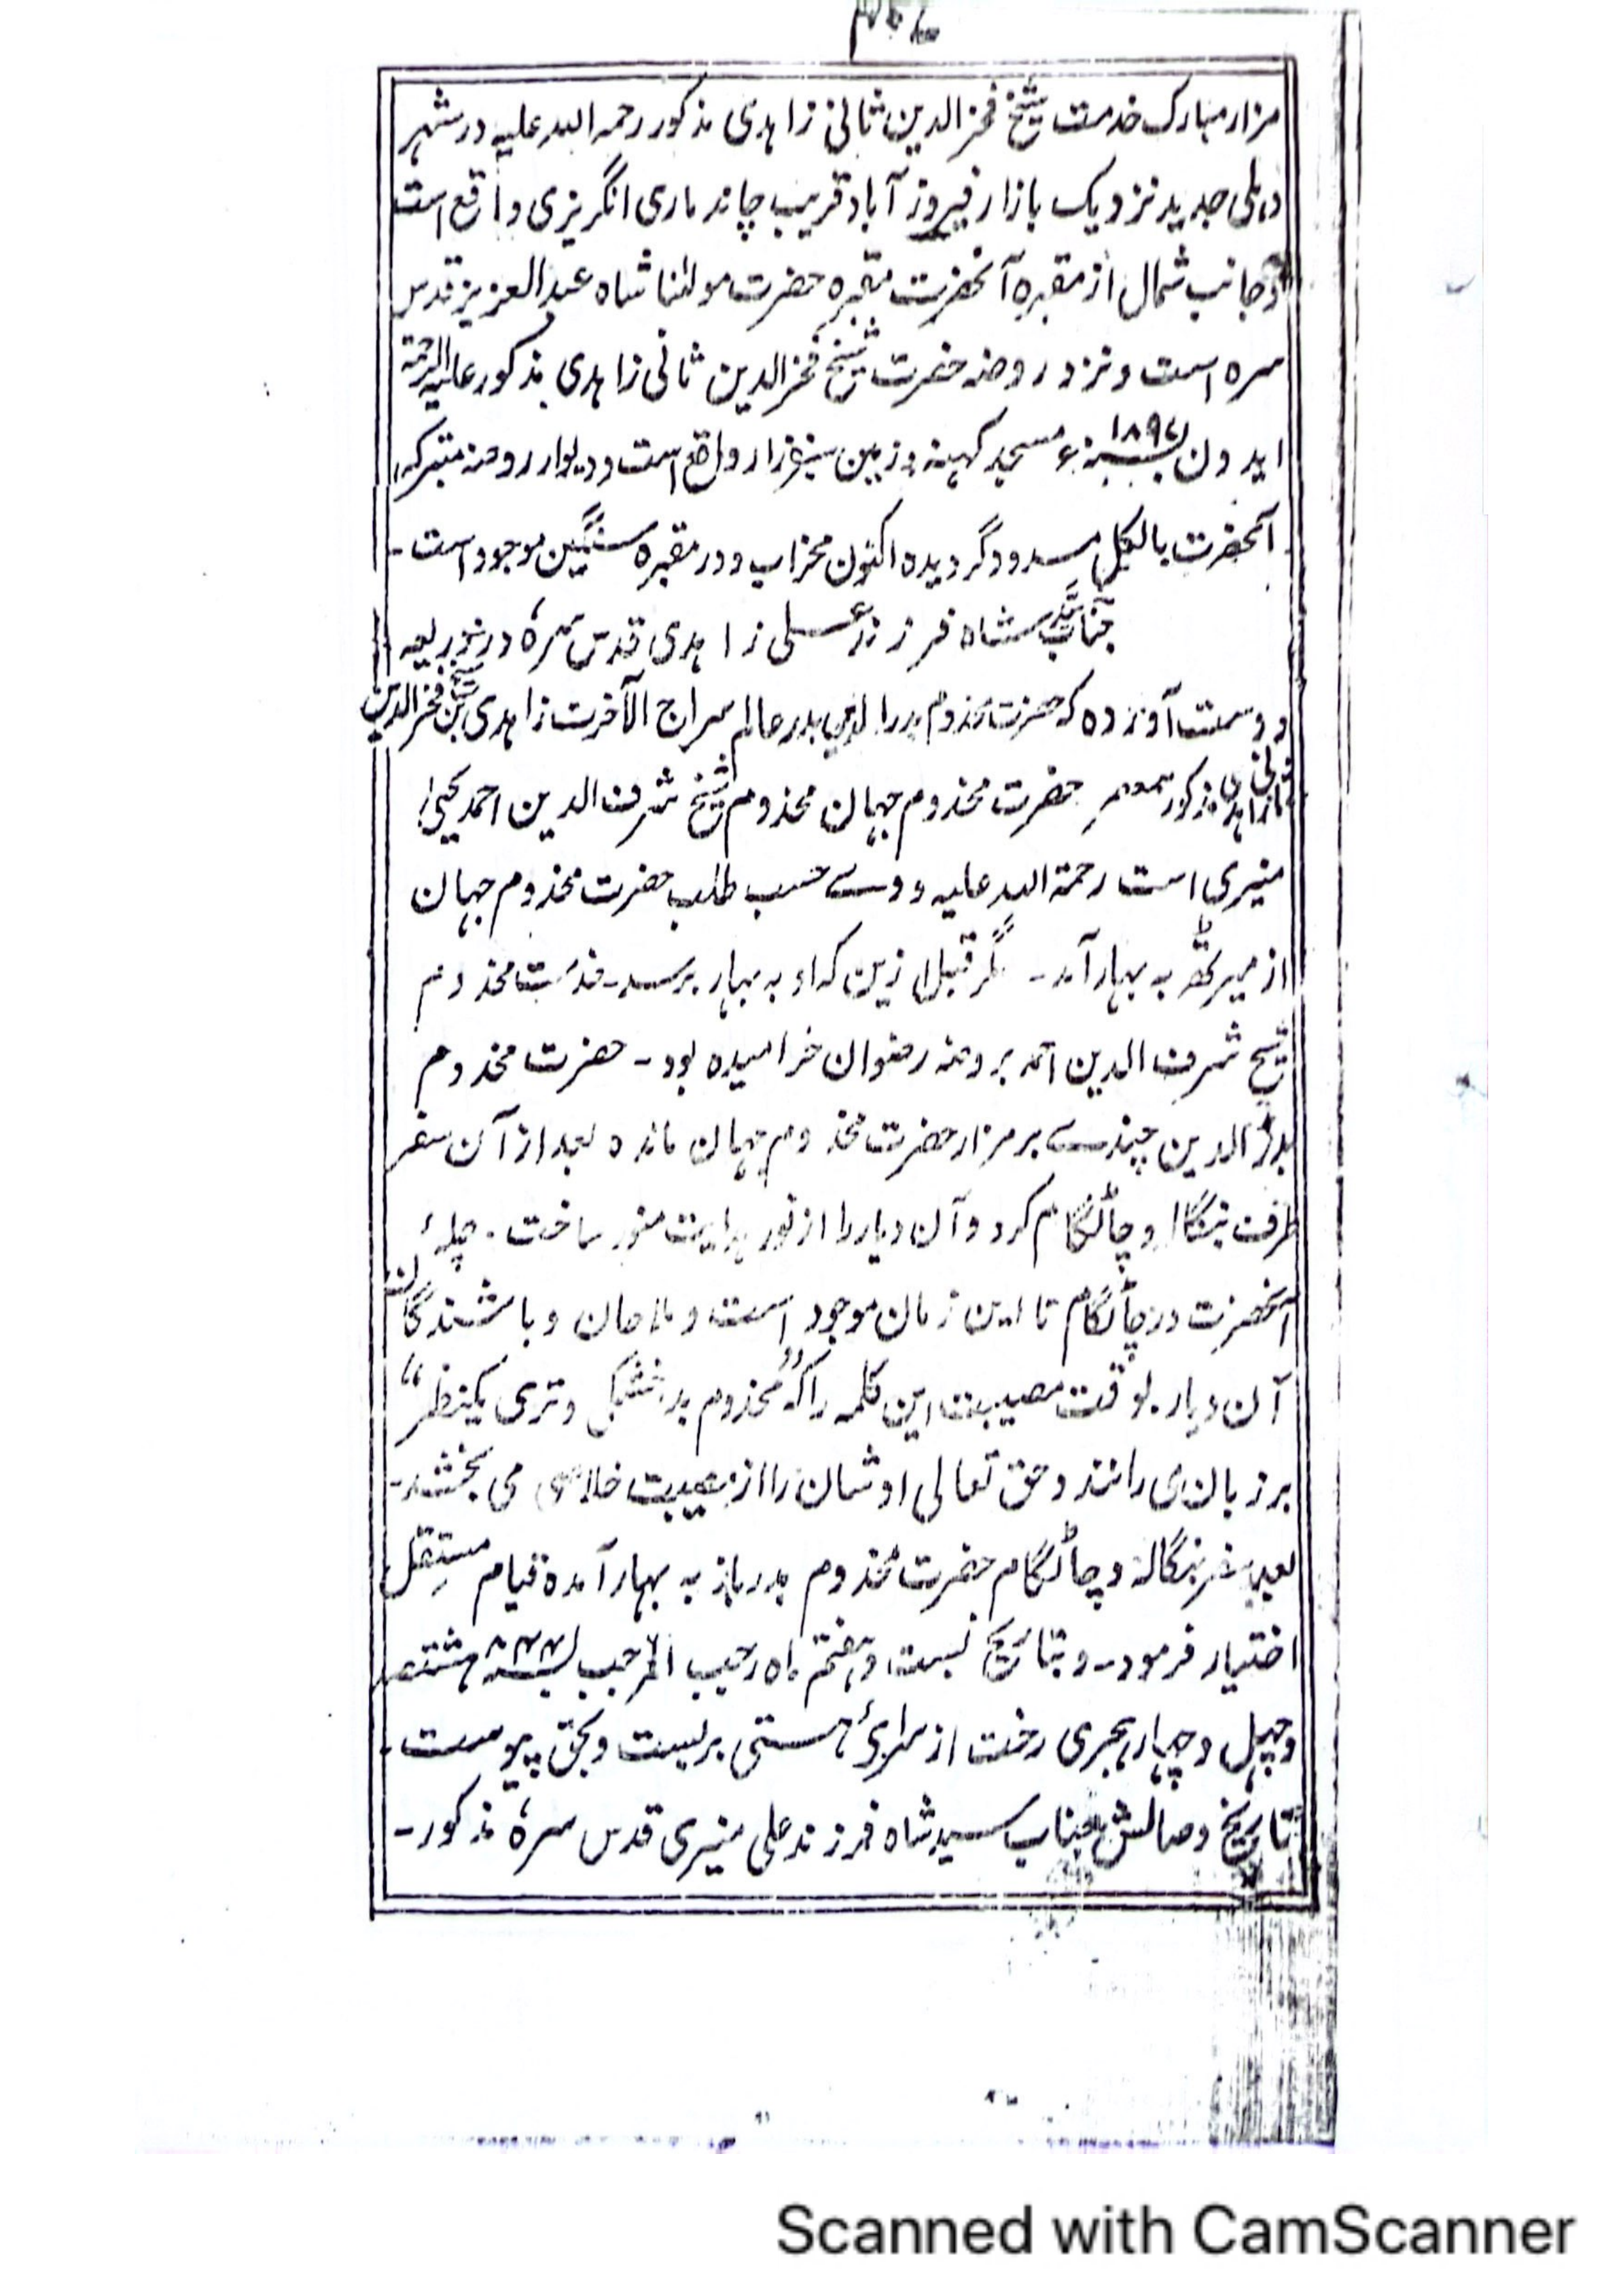 مزار مبارک خدمت شیخ فخر الدین ثانی زاہدی مذکور رحمہ اللہ علیہ در شہر
دہلی جدید نزدیک بازار فیروز آباد قریب چاند ماری انگریزی واقع است
و جانب شمال از مقبرہ آنحضرت مقبرہ حضرت مولٰنا شاہ عبد العزیز قدس
سرہ است و نزد روضہ حضرت شیخ فخر الدین ثانی زاہدی مذکور علیہ الرحمۃ
ایدون بسنہ ۱۸۹۷ء مسجد کہنہ و زمین سبزہ زار واقع است و دیوار روضہ متبرکہ
آنحضرت بالکل مسدود گردیدہ اکنون محراب و در مقبرہ سنگین موجود است -
جناب سید شاہ فرزند علی زاہدی قدس سرہٗ در
دوست آوردہ کہ حضرت مخدوم بدر الدین بدر عالم سراج الآخرت زاہدی بن شیخ فخر الدین
ثانی زاہدی مذکور ہمعصر حضرت مخدوم جہان مخدوم شیخ شرف الدین احمد یحییٰ
منیری است رحمۃ اللہ علیہ و وے حسب طلب حضرت مخدوم جہان
از میرٹھ بہ بہار آمد - مگر قبل ازین کہ او بہ بہار برسد - خدمت مخدوم
شیخ شرف الدین احمد بروضہ رضوان خرامیدہ بود - حضرت مخدوم
بدر الدین چندے بر مزار حضرت مخدوم جہان ماندہ بعد از آن سفر
طرف بنگالہ و چاٹگام کرد و آن دیار را از نور ہدایت منور ساخت - چلۂ
آنحضرت در چاٹگام تا این زمان موجود است و ملاحان و باشندگان
آن دیار بوقت مصیبت این کلمہ را کہ "مخدوم بدر خشکی و تری یکنظر"
بر زبان می رانند و حق تعالی اوشان را از مصیبت خلاصی می بخشد -
بعد سفر بنگالہ و چاٹگام حضرت مخدوم بدر باز بہ بہار آمدہ قیام مستقل
اختیار فرمود - و بتاریخ بست و ہفتم ماہ رجب المرجب بسنہ ۸۴۴ ہشتصد
و چہل و چہار ہجری رخت از سرائ ہستی بربست و بحق پیوست -
تاریخ وصالش جناب سید شاہ فرزند علی منیری قدس سرہٗ مذکور -
Scanned with CamScanner